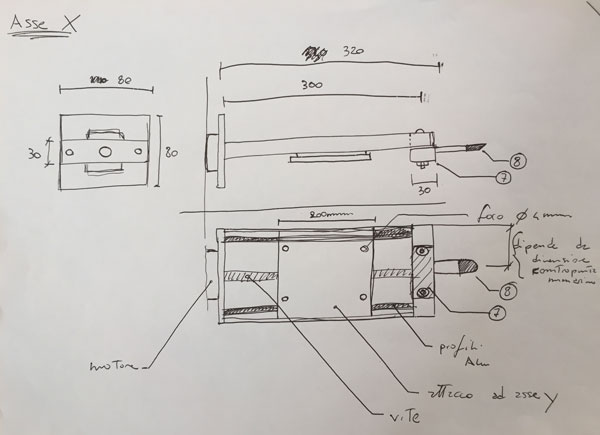 Asse X
320
300
80
30
80
30
8
7
200mm
foro Ø 4mm
dipende da
dimensione
8
7
motore
profili
Alu
attacco ad asse y
vite